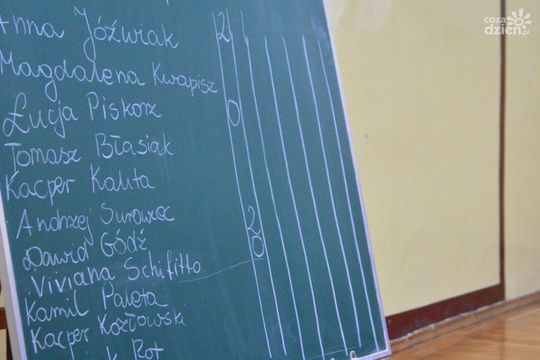 Anna Jóźwiak 2
Magdalena Kwapisz
Łucja Piskorz 0
Tomasz Błasiak
Kacper Kalita
Andrzej Surowiec 2
Dawid Gódź 0
Viviana Schifitto
Kamil Paleta
Kacper Kozłowski
k Rot
coza
dzień.pl